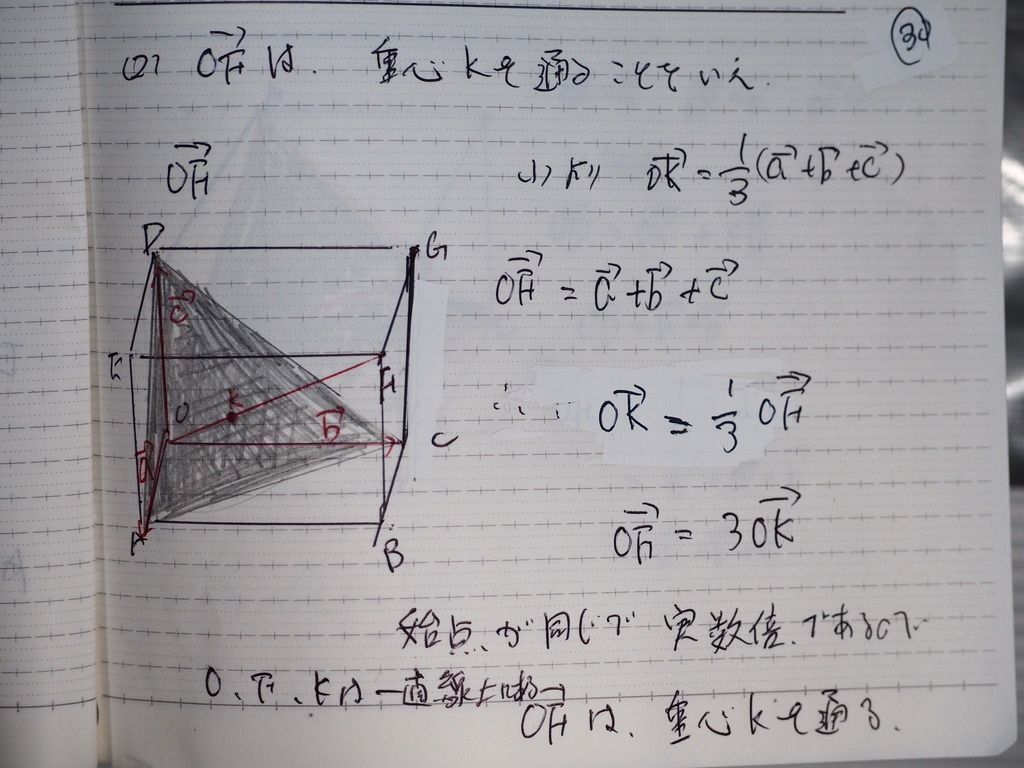 ㉞
(2) OF→は、重心Kを通ることをいえ.
OF→
(1)より OK→=1/3(a→+b→+c→)
D
G
c→
OF→ = a→+b→+c→
E
F
K
O
b→
C
a→
∴ OK→ = 1/3 OF→
A
B
OF→ = 3OK→
始点が同じで実数倍であるので
O、F、Kは一直線上にある→
OF→は、重心Kを通る.